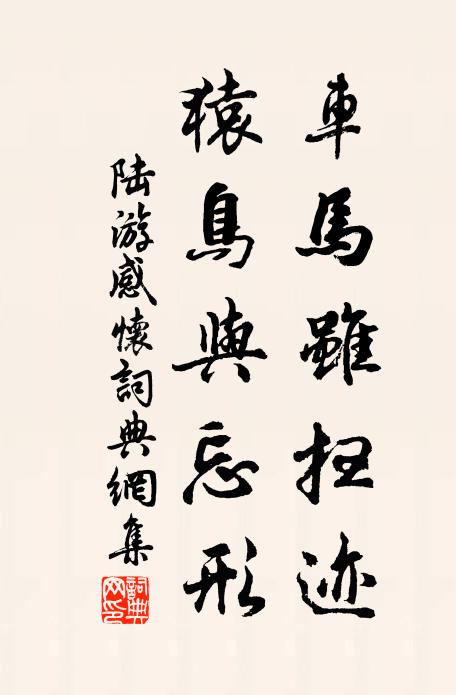 車馬雖掃迹
猿鳥與忘形
陆游感懷詞典網集
詞典網印